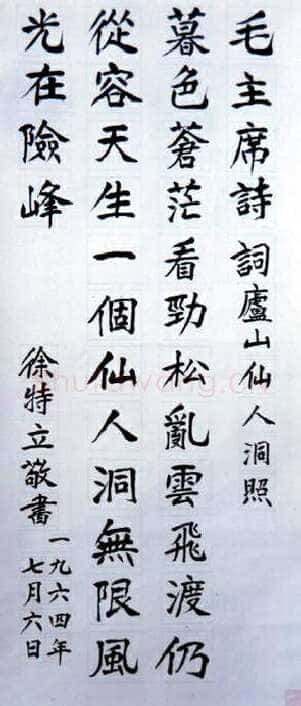 毛主席詩詞廬山仙人洞照
暮色蒼茫看勁松亂雲飛渡仍
從容天生一個仙人洞無限風
光在險峰
徐特立敬書
一九六四年
七月六日